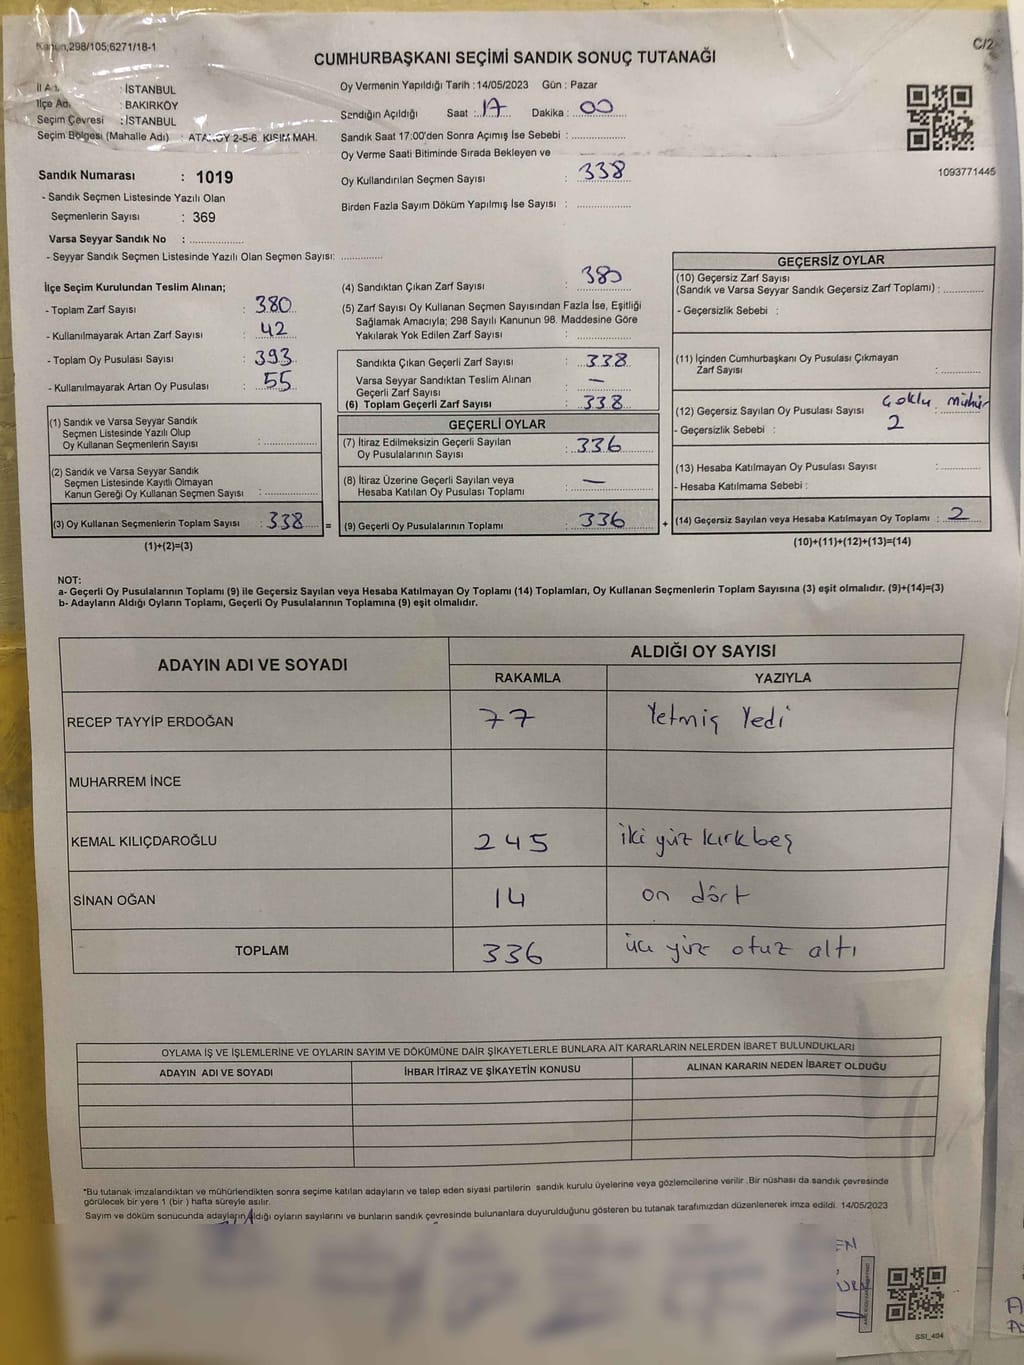 Kanun,298/105;6271/18-1
C/2
CUMHURBAŞKANI SEÇİMİ SANDIK SONUÇ TUTANAĞI
: İSTANBUL
İlçe Ad : BAKIRKÖY
Seçim Çevresi : İSTANBUL
Seçim Bölgesi (Mahalle Adı) : 2-5-6. KISIM MAH.
Sandık Numarası : 1019
- Sandık Seçmen Listesinde Yazılı Olan
Seçmenlerin Sayısı : 369
Varsa Seyyar Sandık No : ..................
- Seyyar Sandık Seçmen Listesinde Yazılı Olan Seçmen Sayısı: .............
Oy Vermenin Yapıldığı Tarih :14/05/2023 Gün : Pazar
Sandığın Açıldığı Saat : 17 Dakika : 00
Sandık Saat 17:00'den Sonra Açımış İse Sebebi : ................
Oy Verme Saati Bitiminde Sırada Bekleyen ve
Oy Kullandırılan Seçmen Sayısı : 338
Birden Fazla Sayım Döküm Yapılmış İse Sayısı : ................
1093771445
İlçe Seçim Kurulundan Teslim Alınan;
- Toplam Zarf Sayısı : 380
- Kullanılmayarak Artan Zarf Sayısı : 42
- Toplam Oy Pusulası Sayısı : 393
- Kullanılmayarak Artan Oy Pusulası : 55
(1) Sandık ve Varsa Seyyar Sandık
Seçmen Listesinde Yazılı Olup
Oy Kullanan Seçmenlerin Sayısı : ................
(2) Sandık ve Varsa Seyyar Sandık
Seçmen Listesinde Kayıtlı Olmayan
Kanun Gereği Oy Kullanan Seçmen Sayısı : ................
(3) Oy Kullanan Seçmenlerin Toplam Sayısı : 338 =
(1)+(2)=(3)
(4) Sandıktan Çıkan Zarf Sayısı : 380
(5) Zarf Sayısı Oy Kullanan Seçmen Sayısından Fazla İse, Eşitliği
Sağlamak Amacıyla; 298 Sayılı Kanunun 98. Maddesine Göre
Yakılarak Yok Edilen Zarf Sayısı : ................
Sandıkta Çıkan Geçerli Zarf Sayısı : 338
Varsa Seyyar Sandıktan Teslim Alınan
Geçerli Zarf Sayısı : —
(6) Toplam Geçerli Zarf Sayısı : 338
GEÇERLİ OYLAR
(7) İtiraz Edilmeksizin Geçerli Sayılan
Oy Pusulalarının Sayısı : 336
(8) İtiraz Üzerine Geçerli Sayılan veya
Hesaba Katılan Oy Pusulası Toplamı : —
(9) Geçerli Oy Pusulalarının Toplamı : 336 +
GEÇERSİZ OYLAR
(10) Geçersiz Zarf Sayısı
(Sandık ve Varsa Seyyar Sandık Geçersiz Zarf Toplamı) : ............
- Geçersizlik Sebebi :
(11) İçinden Cumhurbaşkanı Oy Pusulası Çıkmayan
Zarf Sayısı : ............
(12) Geçersiz Sayılan Oy Pusulası Sayısı : Çoklu Mühür
- Geçersizlik Sebebi : 2
(13) Hesaba Katılmayan Oy Pusulası Sayısı : ............
- Hesaba Katılmama Sebebi :
(14) Geçersiz Sayılan veya Hesaba Katılmayan Oy Toplamı : 2
(10)+(11)+(12)+(13)=(14)
NOT:
a- Geçerli Oy Pusulalarının Toplamı (9) ile Geçersiz Sayılan veya Hesaba Katılmayan Oy Toplamı (14) Toplamları, Oy Kullanan Seçmenlerin Toplam Sayısına (3) eşit olmalıdır. (9)+(14)=(3)
b- Adayların Aldığı Oyların Toplamı, Geçerli Oy Pusulalarının Toplamına (9) eşit olmalıdır.
ADAYIN ADI VE SOYADI ALDIĞI OY SAYISI
RAKAMLA YAZIYLA
RECEP TAYYİP ERDOĞAN 77 Yetmiş Yedi
MUHARREM İNCE
KEMAL KILIÇDAROĞLU 245 iki yüz kırkbeş
SİNAN OĞAN 14 on dört
TOPLAM 336 üç yüz otuz altı
OYLAMA İŞ VE İŞLEMLERİNE VE OYLARIN SAYIM VE DÖKÜMÜNE DAİR ŞİKAYETLERLE BUNLARA AİT KARARLARIN NELERDEN İBARET BULUNDUKLARI
ADAYIN ADI VE SOYADI İHBAR İTİRAZ VE ŞİKAYETİN KONUSU ALINAN KARARIN NEDEN İBARET OLDUĞU
*Bu tutanak imzalandıktan ve mühürlendikten sonra seçime katılan adayların ve talep eden siyasi partilerin sandık kurulu üyelerine veya gözlemcilerine verilir .Bir nüshası da sandık çevresinde
görülecek bir yere 1 (bir ) hafta süreyle asılır.
Sayım ve döküm sonucunda adayların aldığı oyların sayılarını ve bunların sandık çevresinde bulunanlara duyurulduğunu gösteren bu tutanak tarafımızdan düzenlenerek imza edildi. 14/05/2023
SSI_404